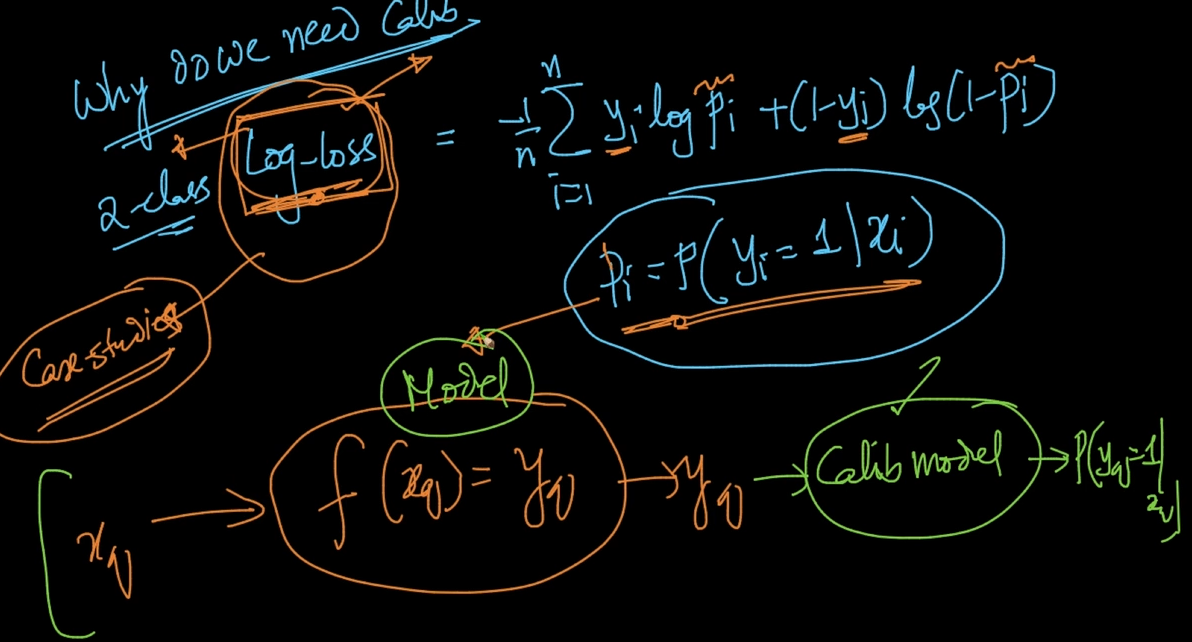 Why do we need Calib
2-class Log-loss = -1/n n∑i=1 yi·log pi + (1-yi) log(1-pi)
pi = P(yi = 1|xi)
Case-studies
Model
xq → f(xq) = yq → yq → Calib model → P(yq=1|xq)